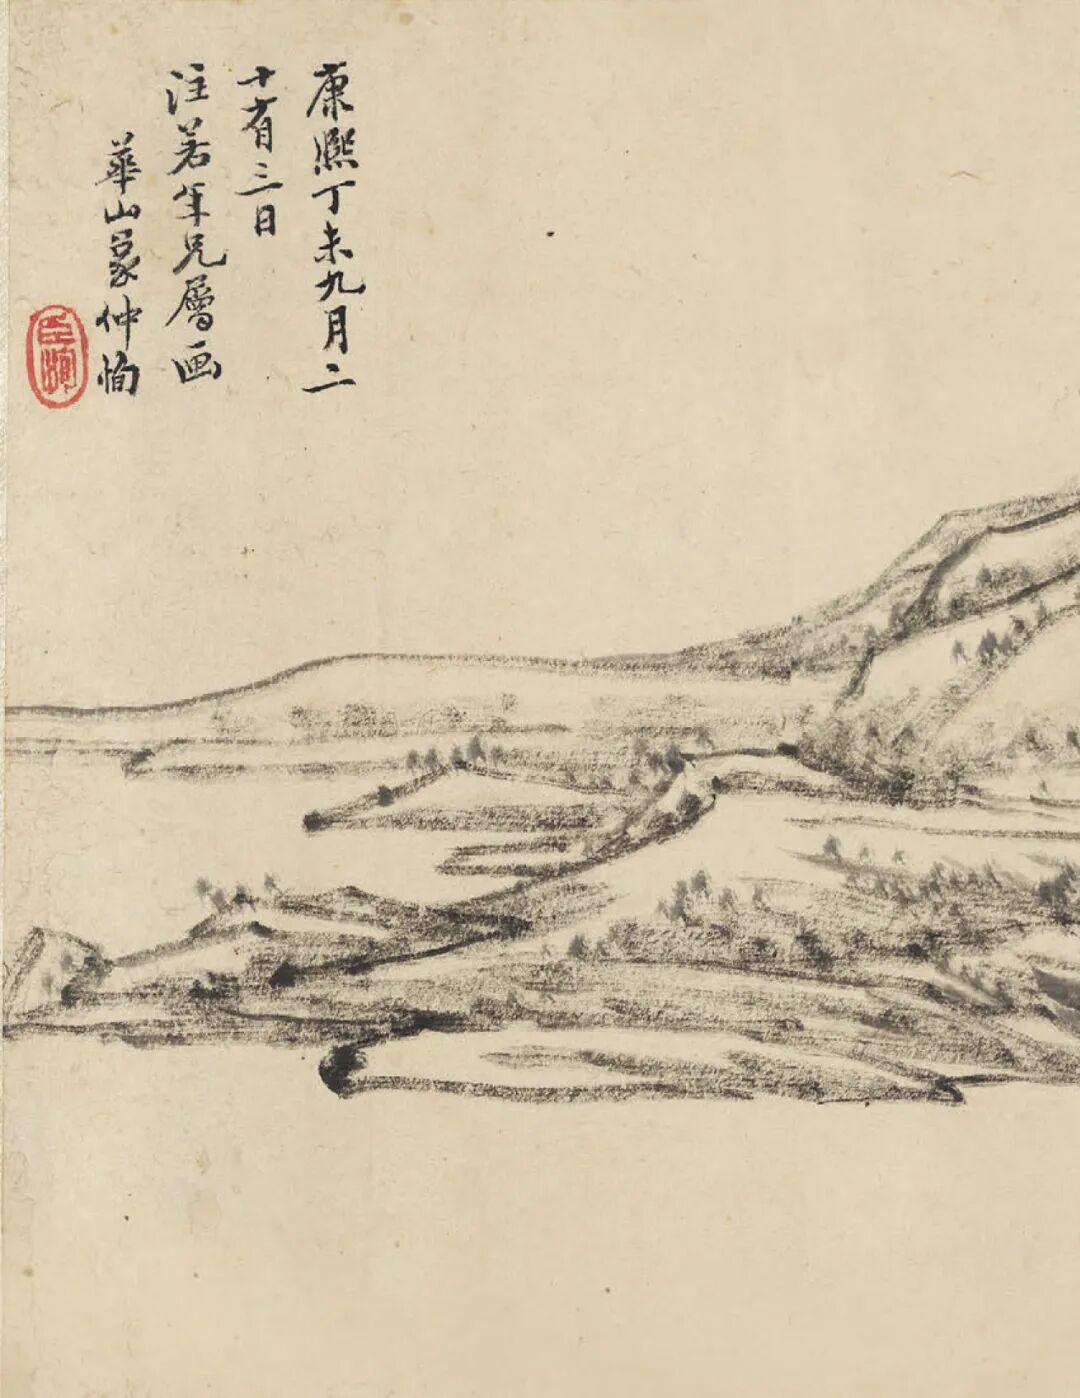 康熙丁未九月二
十有三日
注若年兄画
華山仲恂
臣恂